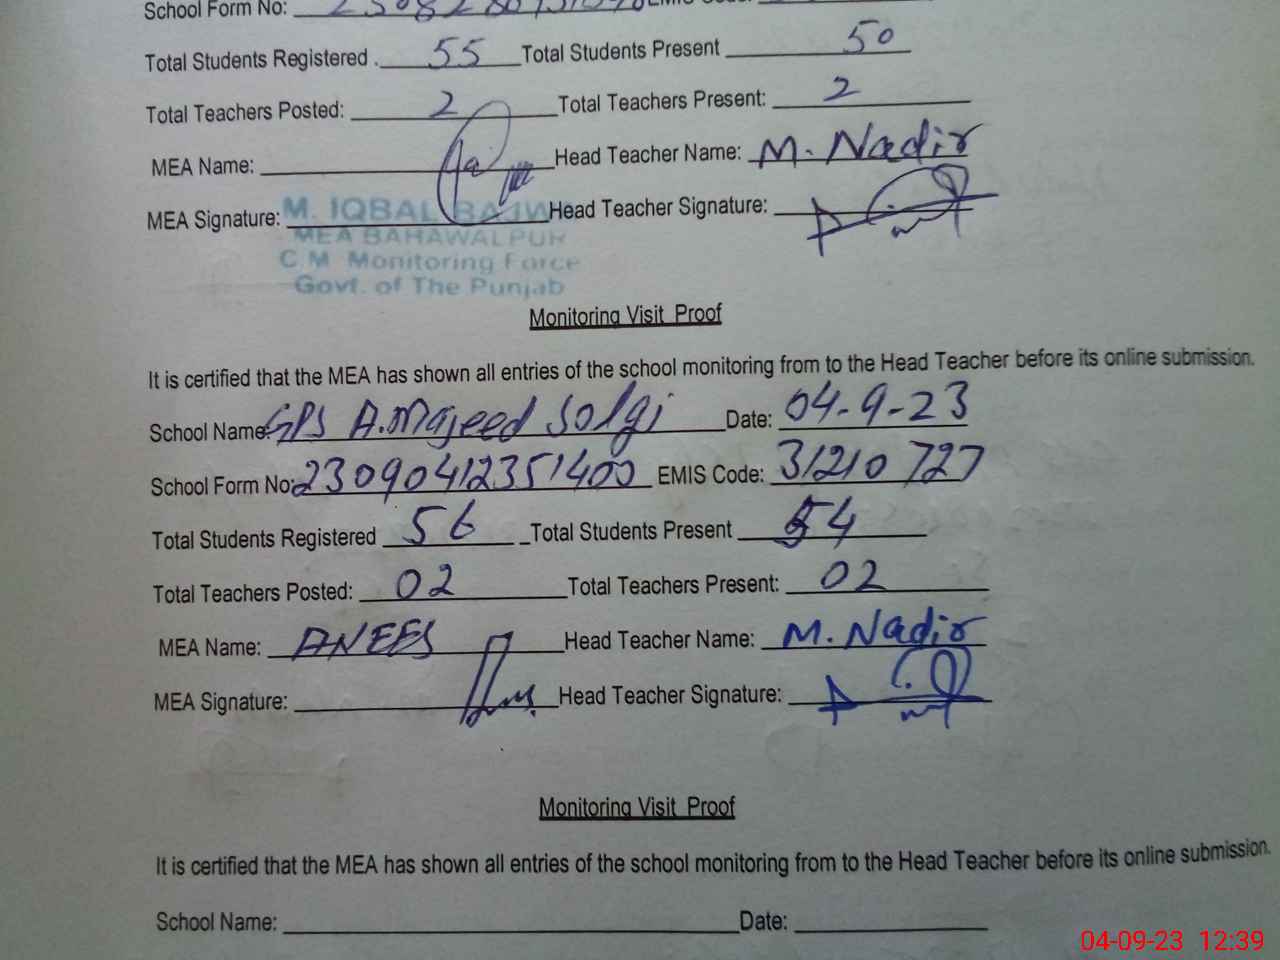 School Form No:
Total Students Registered . 55 Total Students Present 50
Total Teachers Posted: 2 Total Teachers Present: 2
MEA Name: Head Teacher Name: M. Nadir
MEA Signature: Head Teacher Signature:
M. IQBAL BAJWA
MEA BAHAWALPUR
C M Monitoring Force
Govt. of The Punjab
Monitoring Visit Proof
It is certified that the MEA has shown all entries of the school monitoring from to the Head Teacher before its online submission.
School Name: GPS A.Majeed Solgi Date: 04-9-23
School Form No: 23090412351400 EMIS Code: 31210727
Total Students Registered 56 Total Students Present 54
Total Teachers Posted: 02 Total Teachers Present: 02
MEA Name: ANEES Head Teacher Name: M. Nadir
MEA Signature: Head Teacher Signature:
Monitoring Visit Proof
It is certified that the MEA has shown all entries of the school monitoring from to the Head Teacher before its online submission.
School Name: Date:
04-09-23 12:39